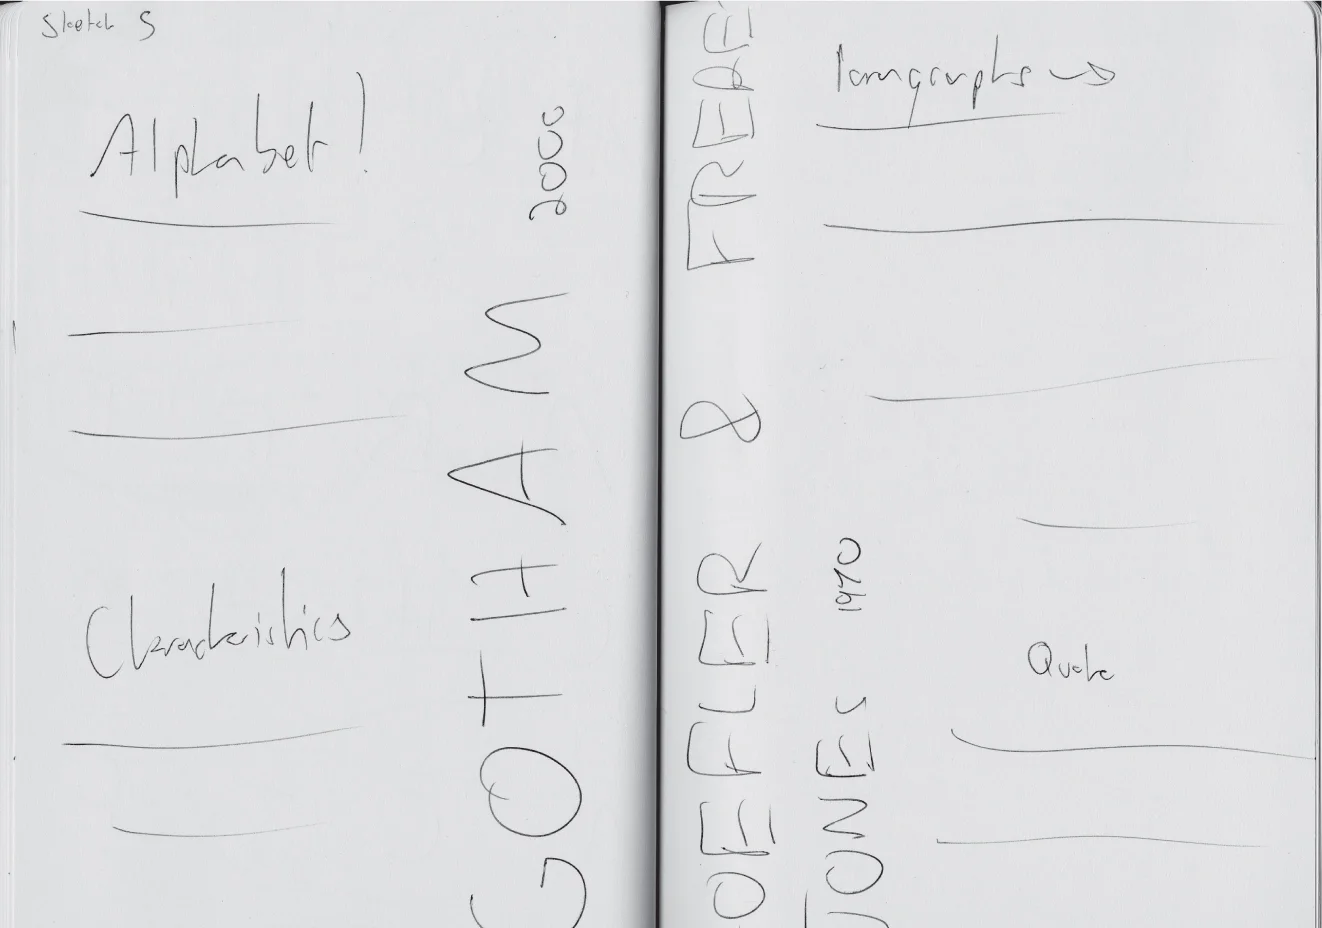 Sketch 5
Alphabet!
Characteristics
GOTHAM 2000
OEFLER & FRERE
JONES 1970
Paragraphs
Quote